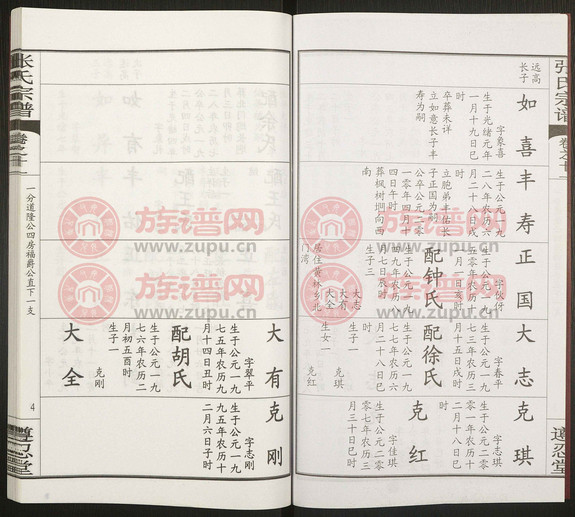 张氏宗谱
卷之廿二
遵忍堂
远高
长子
如喜
字象喜
生于光绪元年
一月十九日巳
时
卒葬未详
立如意长子丰
寿为嗣
丰寿
生于公元一九
二八年农历六
月二十八日戌
时
立胞弟丰佑长
子正国为嗣
公卒公元二零
一零年四月十
四日午时
葬枫树垌向西
南
正国
生于公元一九
配钟氏
生于公元一九
四九年农历八
月七日辰时
生子三
大志
大有
大全
居住黄林乡北
门湾
大志
字春平
生于公元一九
七三年农历三
月十五日戌时
配徐氏
生于公元一九
七七年农历六
月二十八日巳
时
生子一
克琪
生女一
克红
克琪
字志琪
生于公元二零
零一年农历十
二月十八日巳
时
克红
字佳琪
生于公元二零
零七年农历三
月三十日时
大有
字翠平
生于公元一九
七五年农历十
月十四日丑时
配胡氏
生于公元一九
七六年农历二
月初五酉时
生子一
克刚
克刚
字志刚
生于公元一九
九五年农历十
二月六日子时
大全
一分道隆公四房福爵公直下一支
4
张氏宗谱
卷之廿二
遵忍堂
族谱网
www.zupu.cn
族谱网
www.zupu.cn